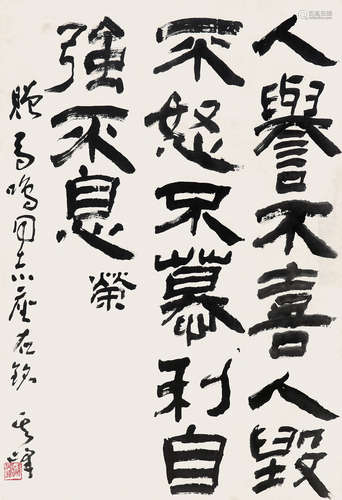 人譽不喜人毀
不怒不慕利自
強不息 榮
贈馬鳴同志座右銘